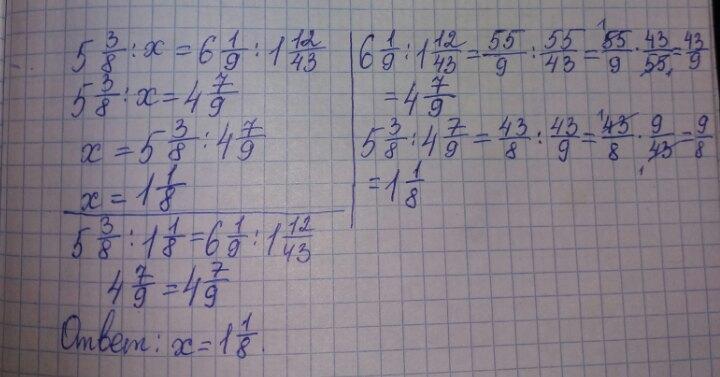 5 3/8 : x = 6 1/9 : 1 12/43
5 3/8 : x = 4 7/9
x = 5 3/8 : 4 7/9
x = 1 1/8
5 3/8 : 1 1/8 = 6 1/9 : 1 12/43
4 7/9 = 4 7/9
Ответ: x = 1 1/8.
6 1/9 : 1 12/43 = 55/9 : 55/43 = 55/9 · 43/55 = 43/9
= 4 7/9
5 3/8 : 4 7/9 = 43/8 : 43/9 = 43/8 · 9/43 = 9/8
= 1 1/8